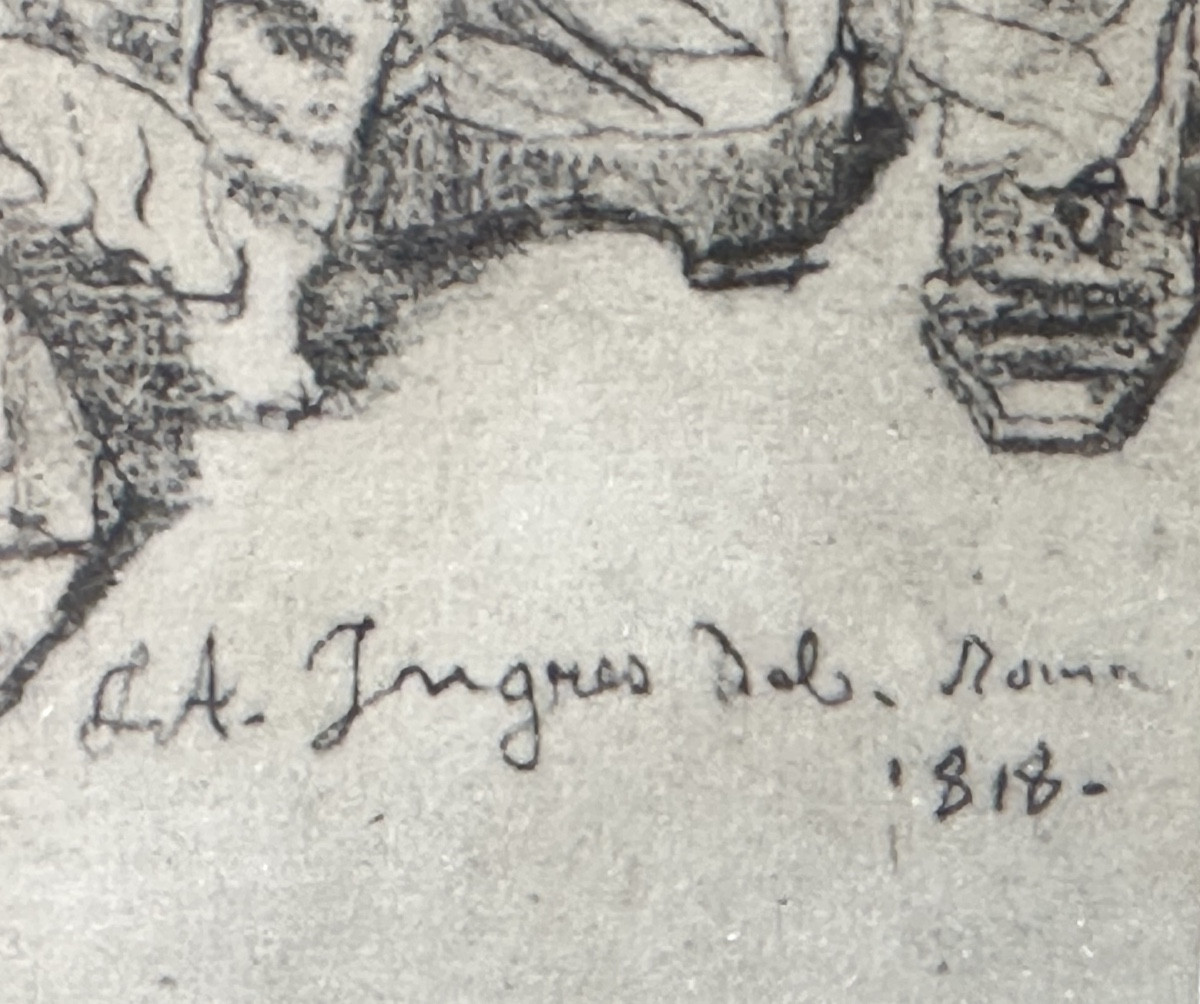 J.A. Ingres Del. Roma
1818.